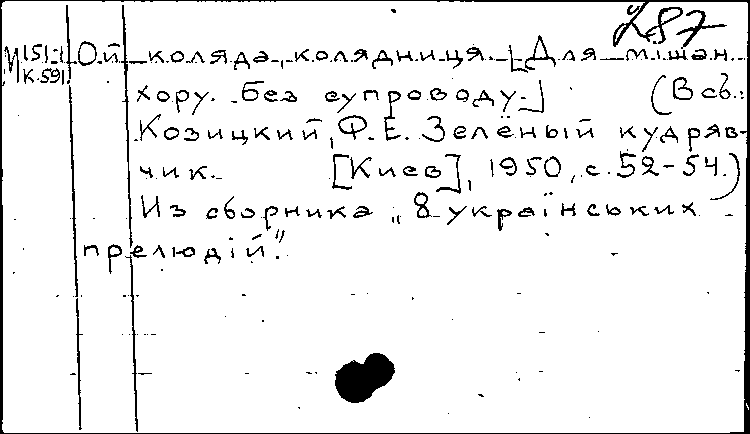 287
М151:1 Ой коляда, колядниця. [Для мішан.
К.591. хору. без супроводу.] (В сб.:
Козицкий, Ф.Е. Зелёный кудряв-
чик. [Киев], 1950, с. 52-54.)
Из сборника „8 українських
прелюдій."